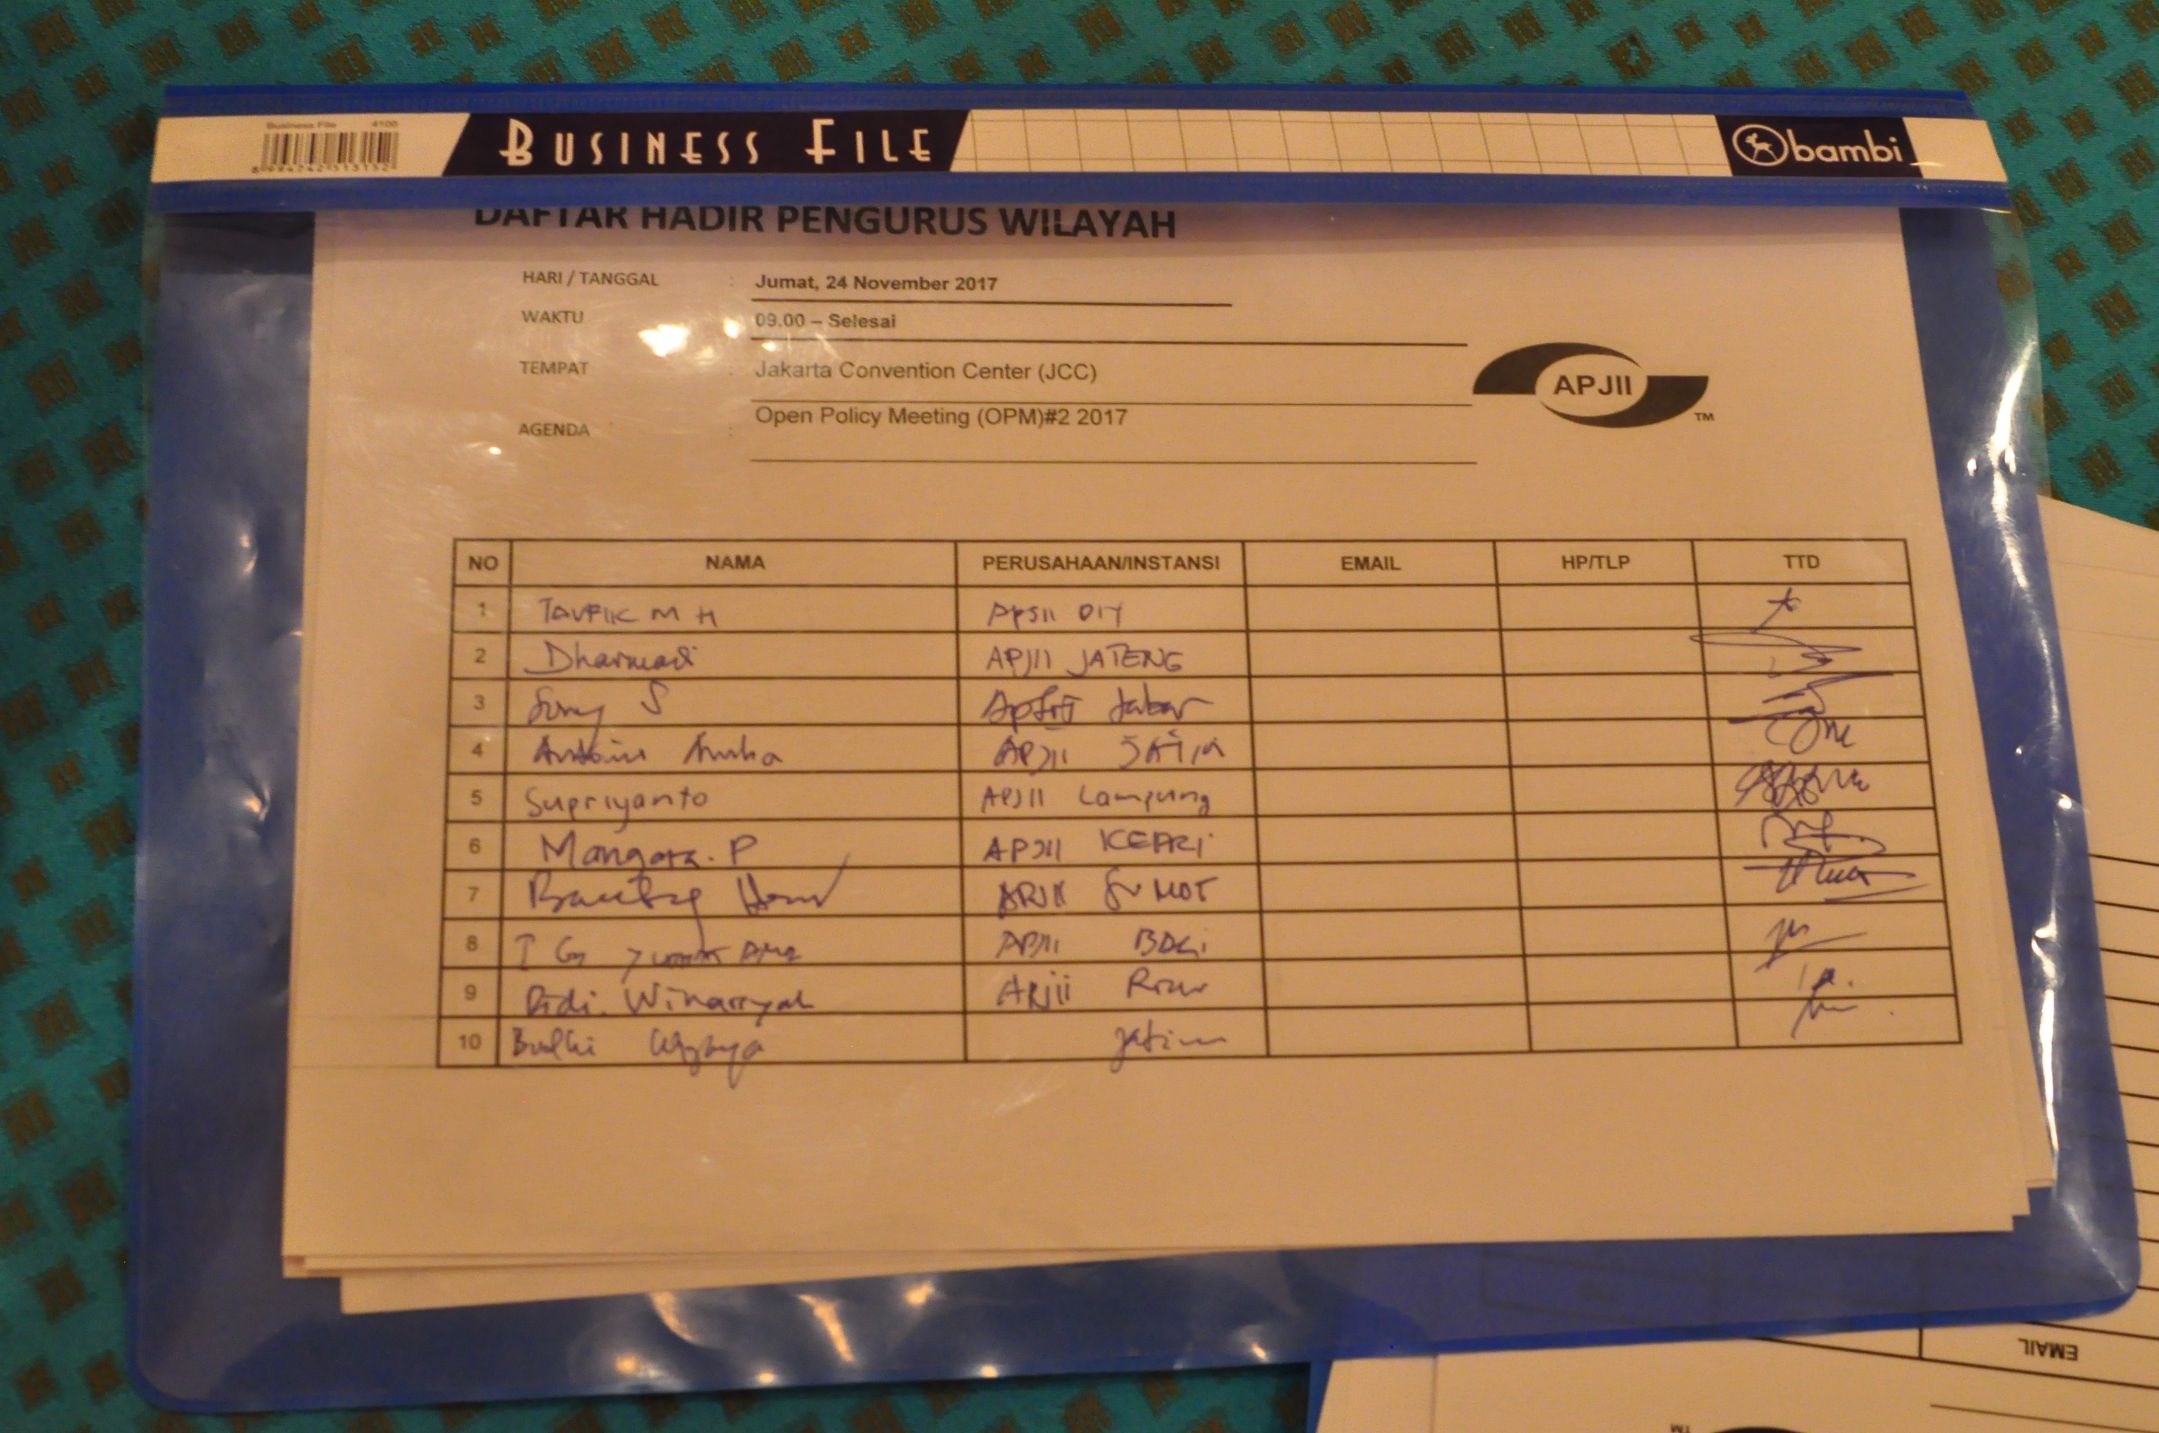 Business File 4100
BUSINESS FILE
bambi
DAFTAR HADIR PENGURUS WILAYAH
HARI / TANGGAL : Jumat, 24 November 2017
WAKTU 09.00 – Selesai
TEMPAT : Jakarta Convention Center (JCC)
AGENDA : Open Policy Meeting (OPM)#2 2017
APJII TM
NO NAMA PERUSAHAAN/INSTANSI EMAIL HP/TLP TTD
1 TAUFIK M H APJII DIY
2 Dharmadi APJII JATENG
3 S APJII Jabar
4 APJII JATIM
5 Supriyanto APJII Lampung
6 Mangara. P APJII KEPRI
7 APJII SUMUT
8 APJII BALI
9 Didi. APJII Riau
10 Jatim
EMAIL
TM